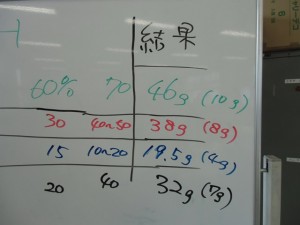 結果
60% 70 46g (10g)
30 40~50 38g (8g)
15 10~20 19.5g (4g)
20 40 32g (7g)